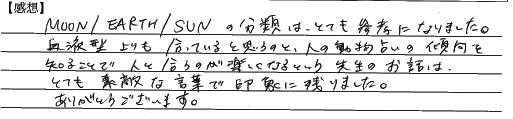 【感想】
MOON/EARTH/SUN の分類は、とても参考になりました。
血液型よりも 合っていると思うのと、人の動物占いの傾向を
知ることで 人と会うのが楽しくなるという 先生のお話は、
とても 素敵な言葉で印象に残りました。
ありがとうございます。